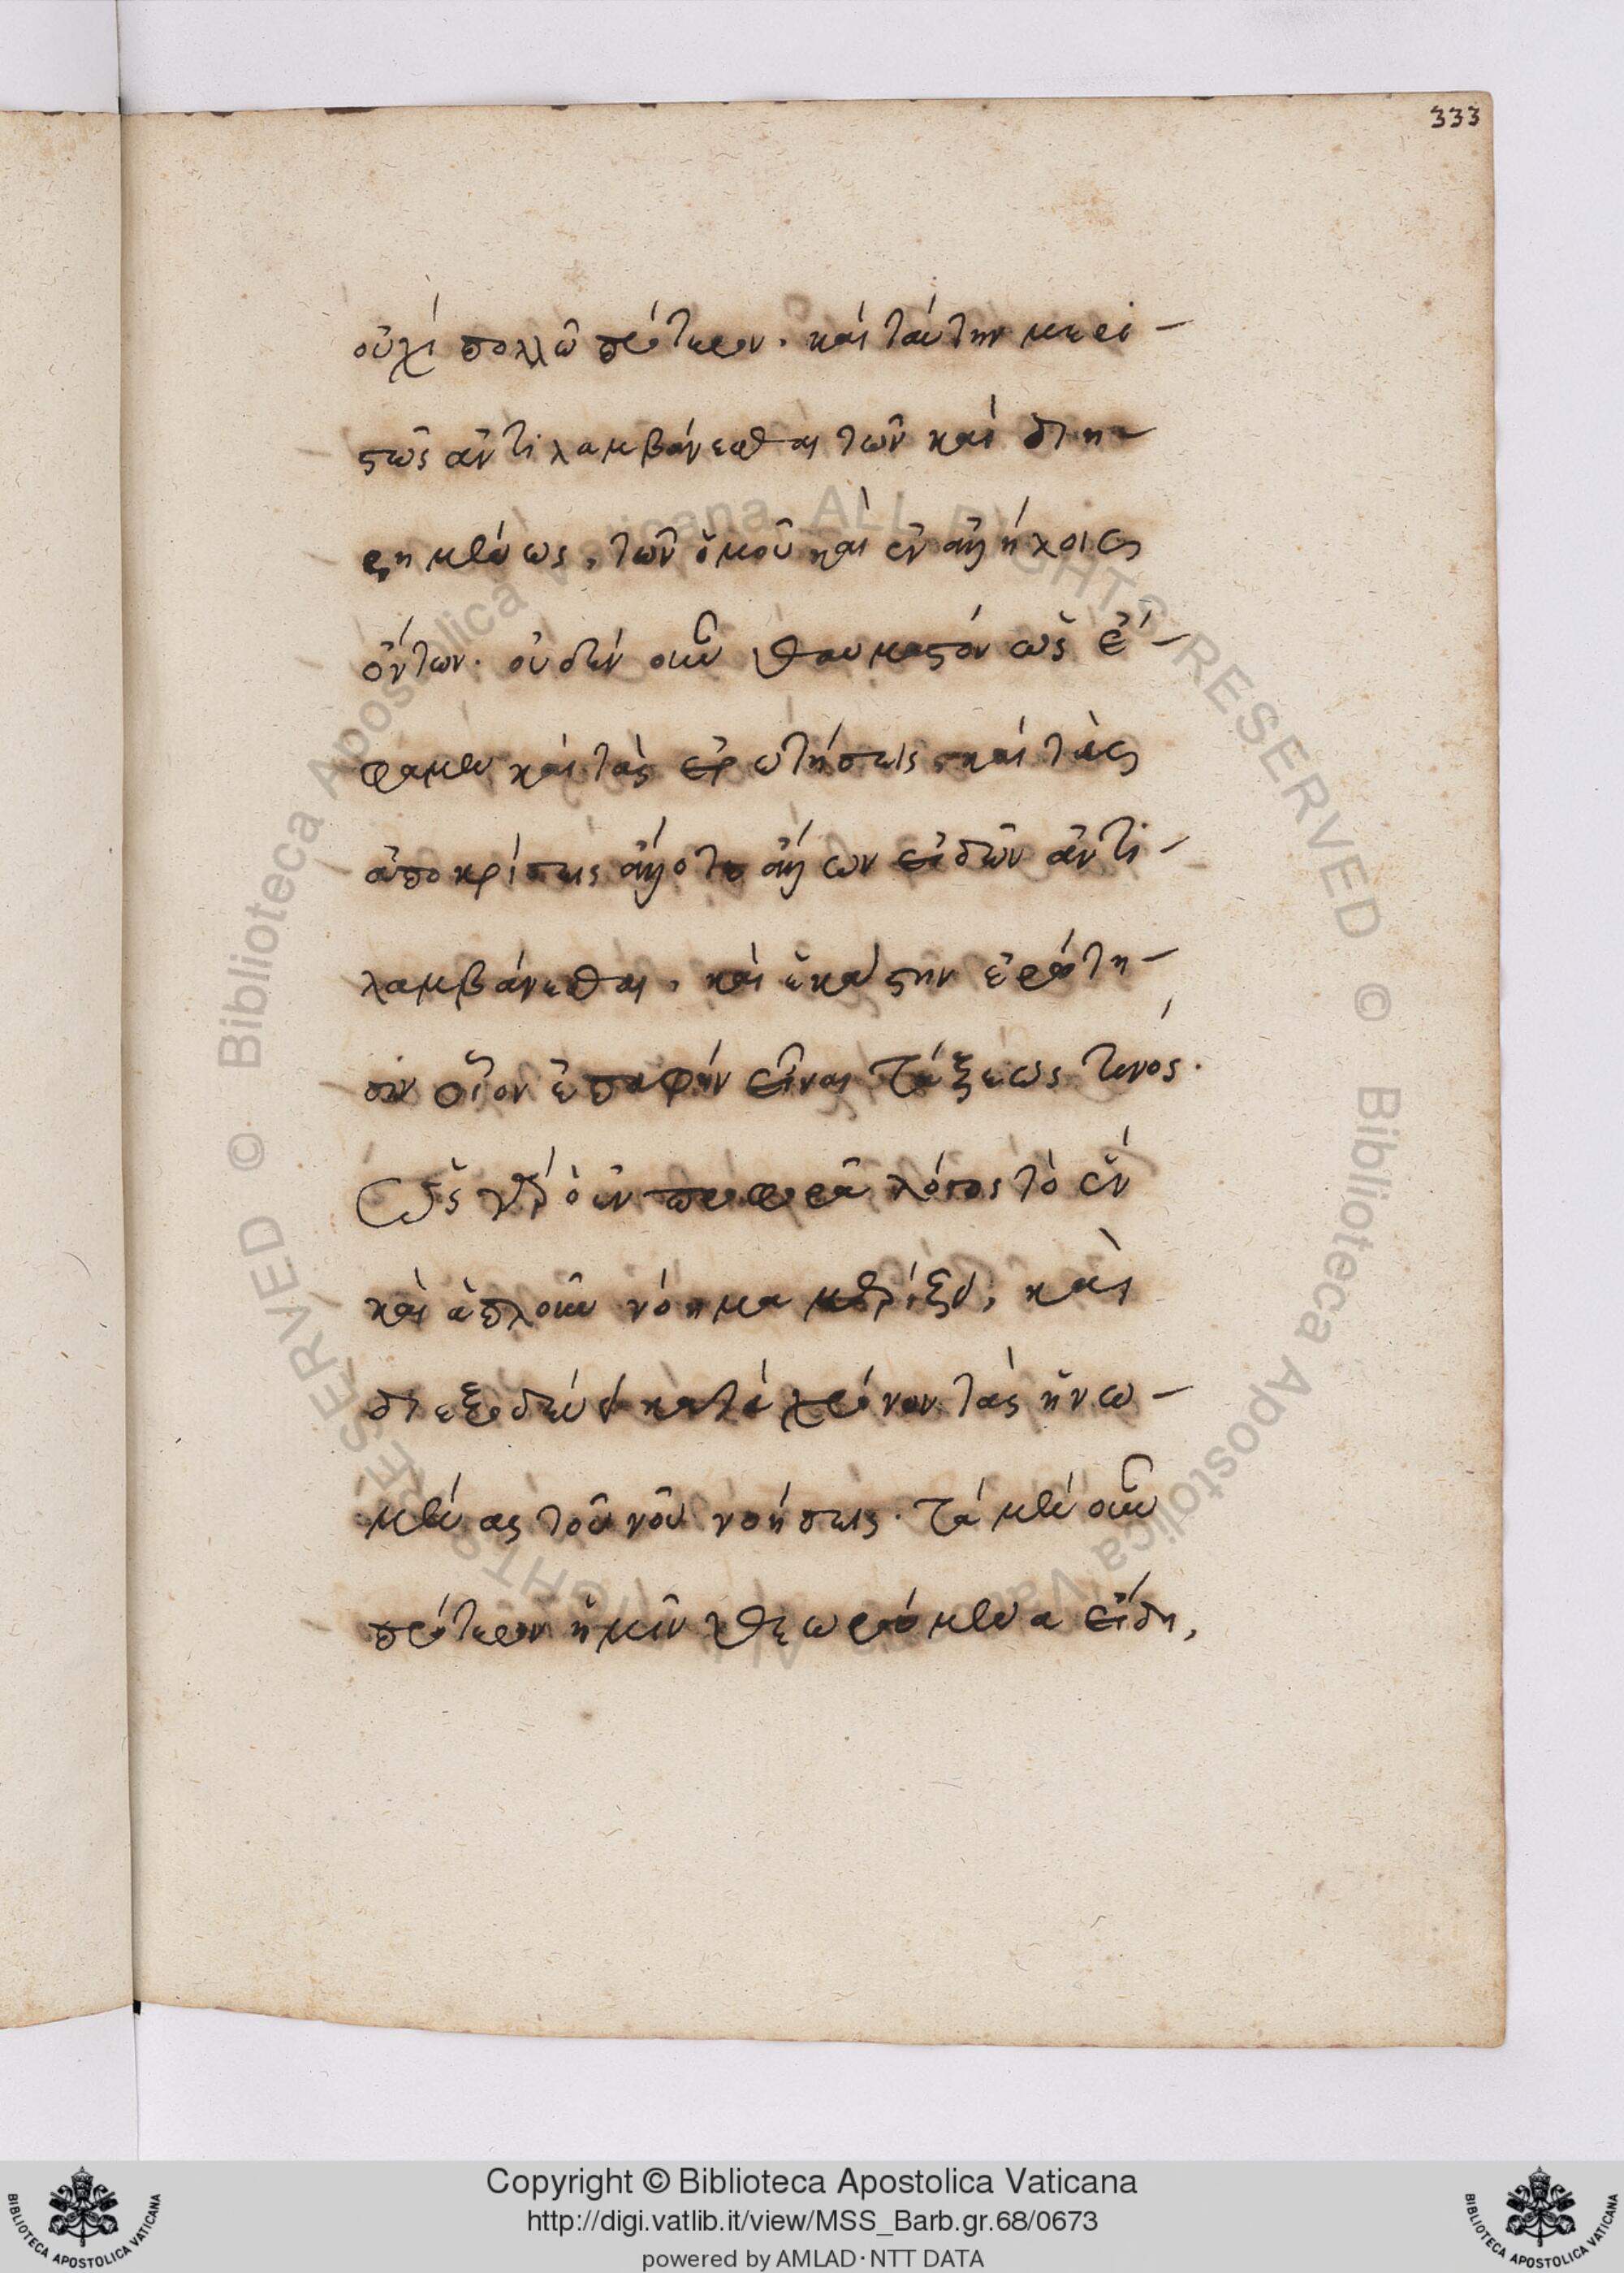 333
οὐχὶ πολλῷ πρότερον. καὶ ταύτην μερι-
στῶς ἀντιλαμβάνεσθαι τῶν καὶ διῃ-
ρημένως, τῶν ὁμοῦ καὶ ἐν ἀλλήλοις
ὄντων. οὐδὲν οὖν θαυμαστὸν ὡς ἔ-
φαμεν καὶ τὰς ἐρωτήσεις καὶ τὰς
ἀποκρίσεις ἄλλοτε ἄλλων εἰδῶν ἀντι-
λαμβάνεσθαι, καὶ ἑκάστην ἐρώτη-
σιν οἷον ἐπαφὴν εἶναι τάξεώς τινος.
Ὡς γὰρ ὁ ἐν προφορᾷ λόγος τὸ ἓν
καὶ ἁπλοῦν νόημα μερίζει, καὶ
διεξοδεύει κατὰ χρόνον τὰς ἡνω-
μένας τοῦ νοῦ νοήσεις. Τὰ μὲν οὖν
πρότερον ἡμῖν θεωρούμενα εἴδη,
Copyright © Biblioteca Apostolica Vaticana
http://digi.vatlib.it/view/MSS_Barb.gr.68/0673
powered by AMLAD·NTT DATA
BIBLIOTECA APOSTOLICA VATICANA
BIBLIOTECA APOSTOLICA VATICANA
© Biblioteca Apostolica Vaticana ALL RIGHTS RESERVED © Biblioteca Apostolica Vaticana ALL RIGHTS RESERVED